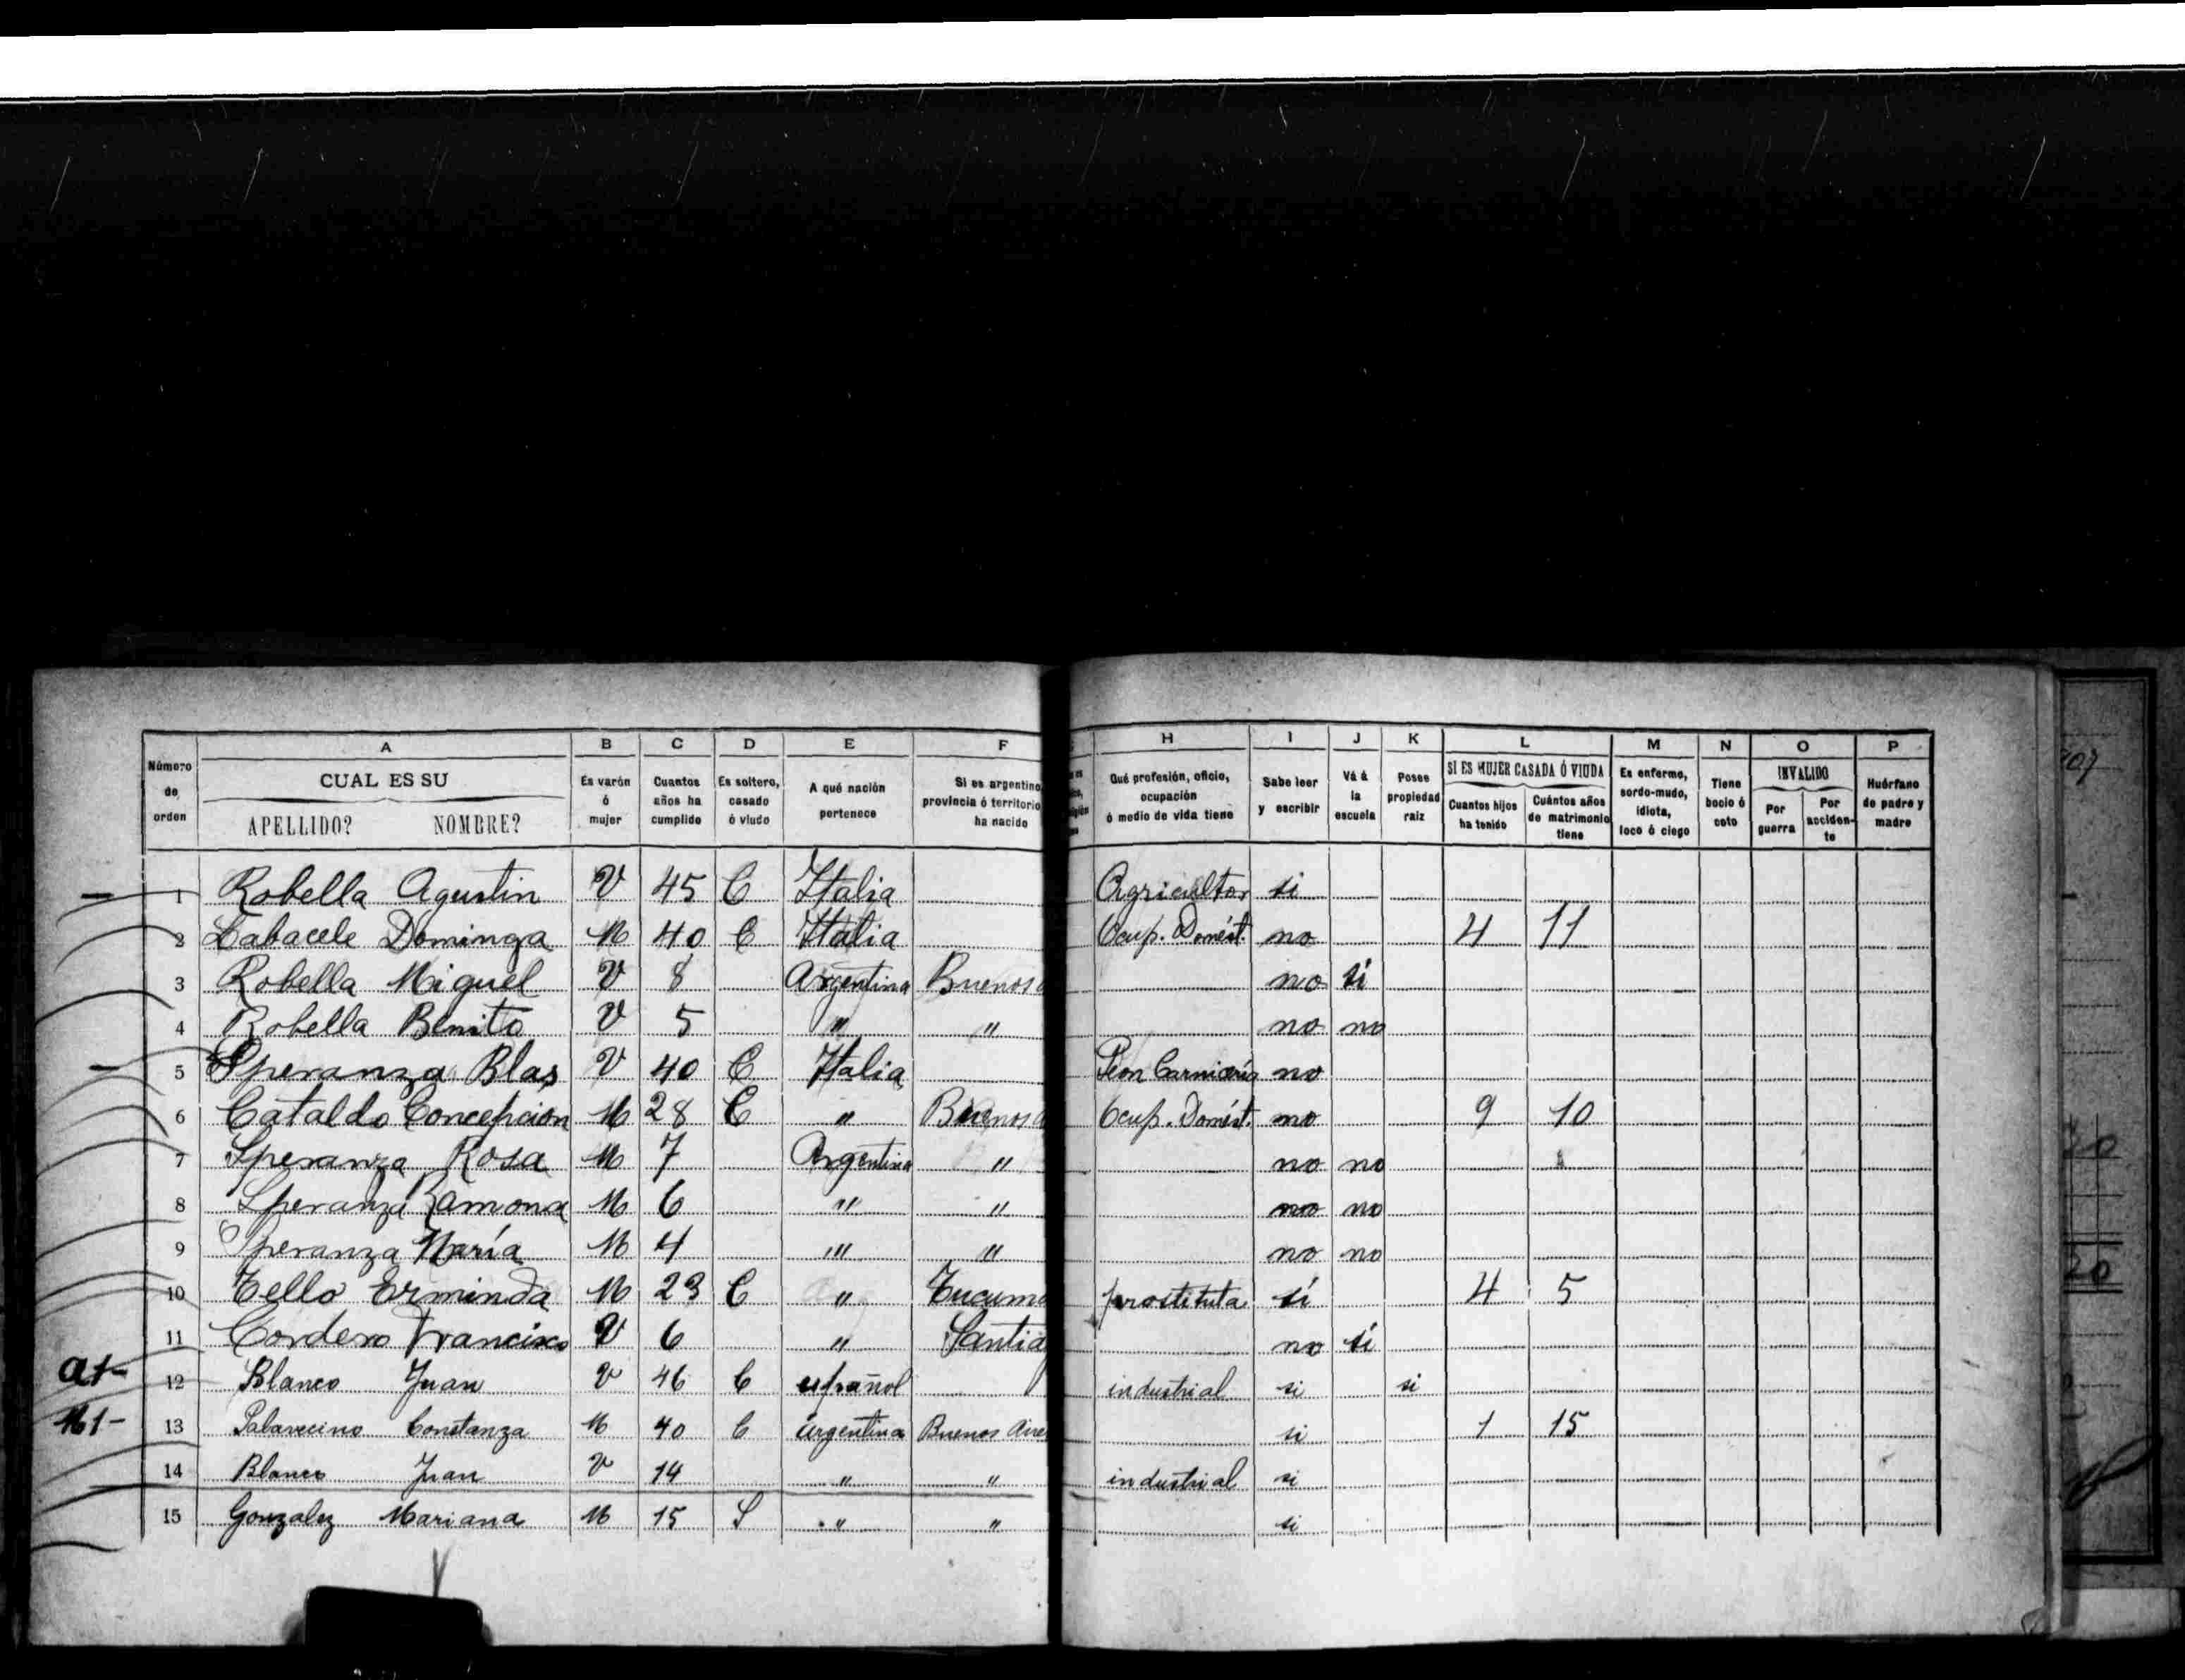 A B C D E F H I J K L M N O P
Número de orden
CUAL ES SU
APELLIDO? NOMBRE?
Es varón ó mujer
Cuantos años ha cumplido
Es soltero, casado ó viudo
A qué nación pertenece
Si es argentino provincia ó territorio ha nacido
Qué profesión, oficio, ocupación ó medio de vida tiene
Sabe leer y escribir
Vá á la escuela
Posee propiedad raiz
SI ES MUJER CASADA Ó VIUDA
Cuantos hijos ha tenido
Cuántos años de matrimonio tiene
Es enfermo, sordo-mudo, idiota, loco ó ciego
Tiene bocio ó coto
INVALIDO
Por guerra
Por acciden-te
Huérfano de padre y madre
1 Robella Agustin V 45 C Italia Agricultor si
2 Labacele Dominga M 40 C Italia Ocup. Domést. no 4 11
3 Robella Miguel V 8 Argentina Buenos a no si
4 Robella Benito V 5 " " no no
5 Speranza Blas V 40 C Italia Peon Carniceria no
6 Cataldo Concepcion M 28 C " Buenos a Ocup. Domést. no 9 10
7 Speranza Rosa M 7 Argentina " no no
8 Speranza Ramona M 6 " " no no
9 Speranza María M 4 " " no no
10 Tello Erminda M 23 C " Tucuma prostituta si 4 5
11 Cordero Francisco V 6 " Santia no si
a1- 12 Blanco Juan V 46 C español industrial si si
M1- 13 Palavecino Constanza M 40 C argentina Buenos Aire si 1 15
14 Blanco Juan V 14 " " industrial si
15 Gonzalez Mariana M 15 S " " si